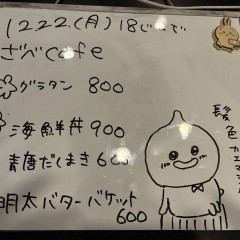 12.22.(月)18じ〜で
ざべcafe
グラタン 800
海鮮丼 900
青唐だしまき 600
明太バターバケット
600
髪色カエマシタ